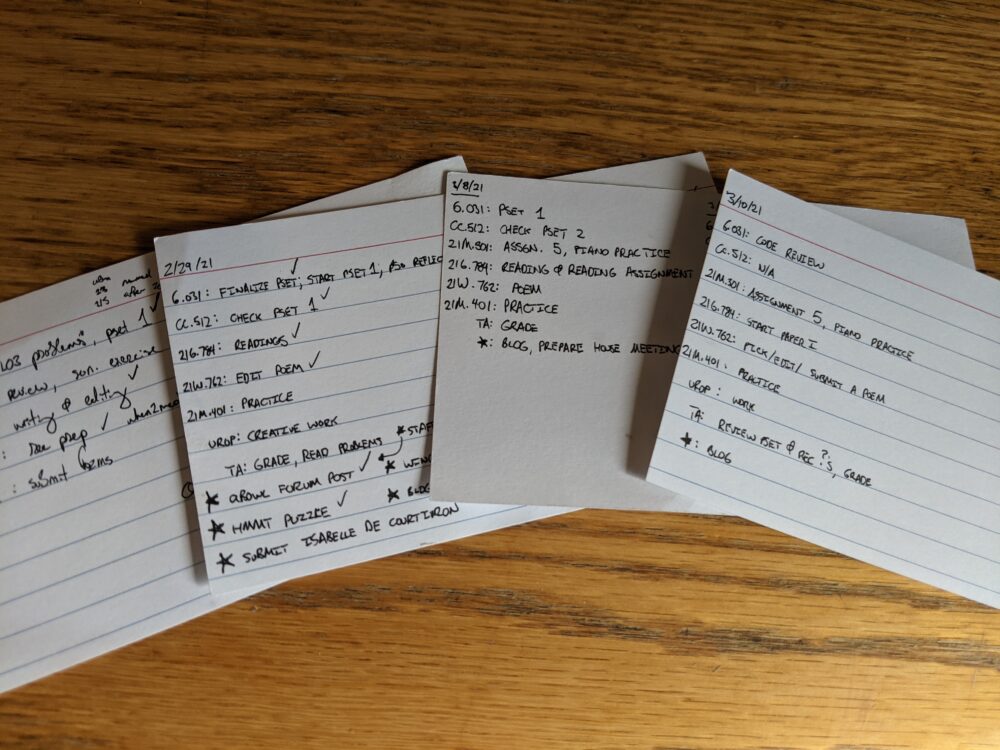 103 problems, pset 1 ✓
review, son. exercise
writing & editing ✓
: prep ✓ when2meet
: submit forms
2/29/21
6.031: FINALIZE PSET ✓; START PSET 1, PSO REFLEC
CC.512: CHECK PSET 1 ✓
21G.784: READINGS ✓
21W.762: EDIT POEM ✓
21M.401: PRACTICE
UROP: CREATIVE WORK
TA: GRADE, READ PROBLEMS
★ STAF
★ AROWK FORUM POST ✓
★ WING
★ HMMT PUZZLE ✓
★ BLOG
★ SUBMIT ISABELLE DE COURTIRON
3/8/21
6.031: PSET 1
CC.512: CHECK PSET 2
21M.301: ASSGN. 5, PIANO PRACTICE
21G.784: READING & READING ASSIGNMENT
21W.762: POEM
21M.401: PRACTICE
TA: GRADE
★: BLOG, PREPARE HOUSE MEETING
3/10/21
6.031: CODE REVIEW
CC.512: N/A
21M.301: ASSIGNMENT 5, PIANO PRACTICE
21G.784: START PAPER I
21W.762: PICK/EDIT/SUBMIT A POEM
21M.401: PRACTICE
UROP: WORK
TA: REVIEW PSET & REC ?'S, GRADE
★: BLOG